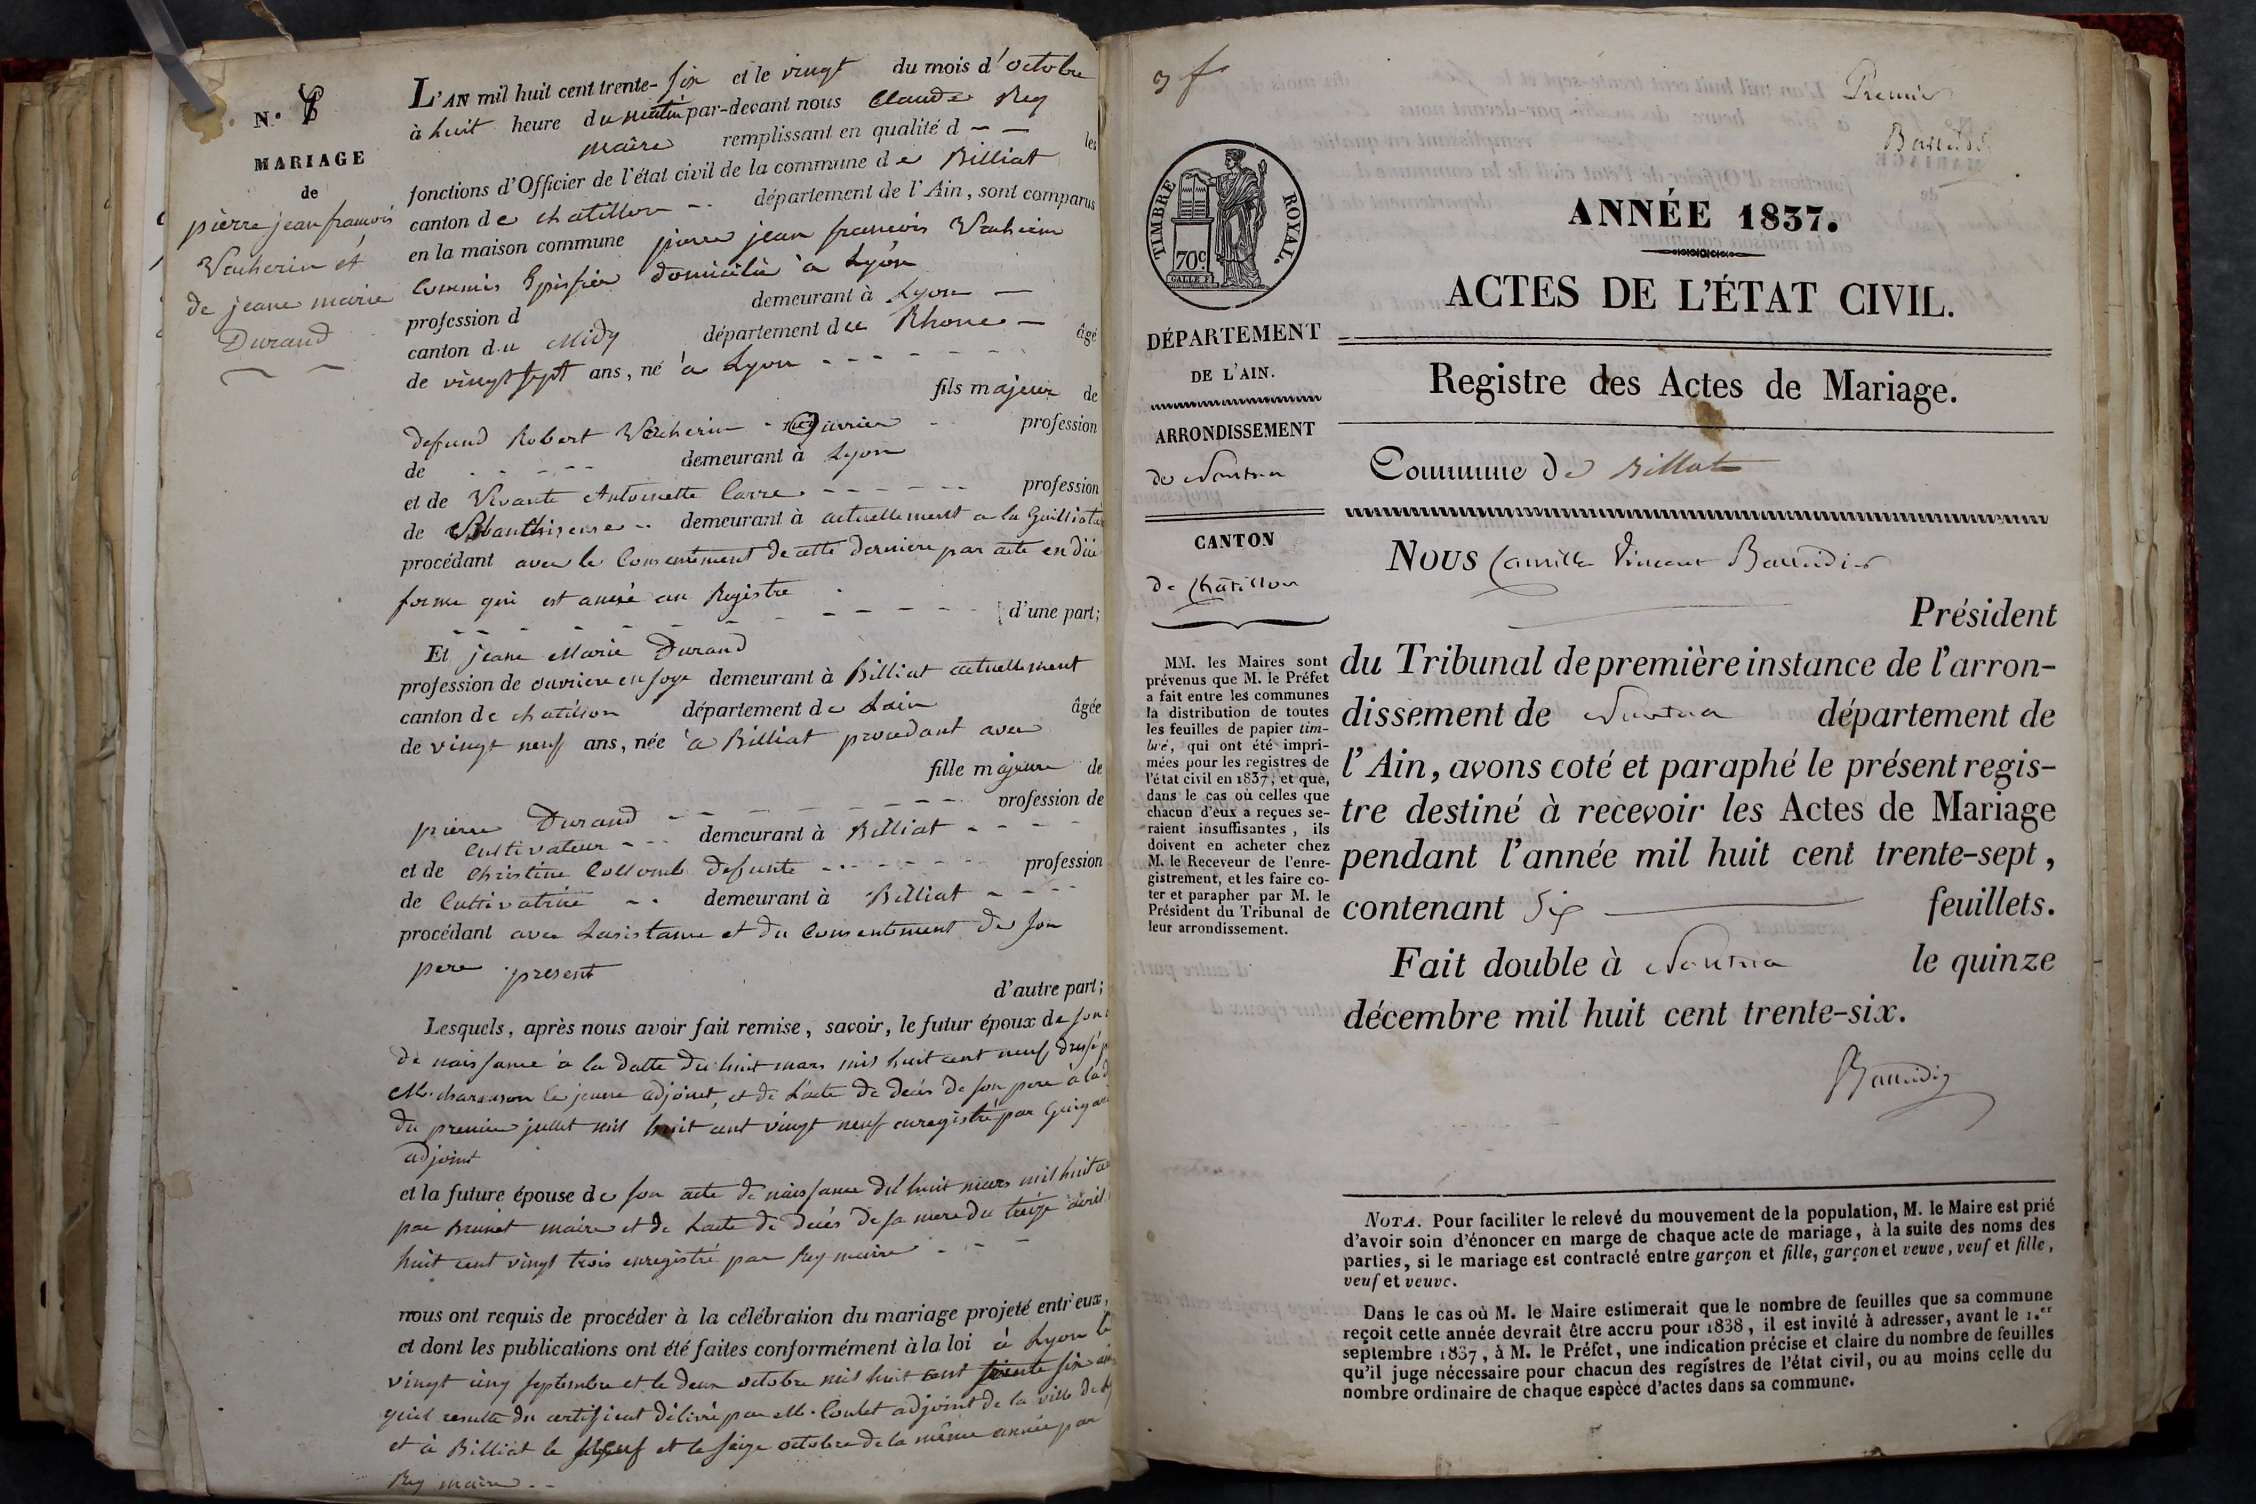 N.
MARIAGE
de
pierre jean francois
Vacherin et
de jeane marie
Durand
L'AN mil huit cent trente-six et le vingt du mois d'octobre
à huit heure du matin par-devant nous Claude Rey
maire remplissant en qualité d les
fonctions d'Officier de l'état civil de la commune de Billiat
canton de chatillon département de l'Ain, sont comparus
en la maison commune pierre jean francois Vacherin
Commis Epissier domicilié a Lyon
profession d demeurant à Lyon
canton du Midy département du Rhone âgé
de vingt sept ans, né a Lyon
fils majeur de
defund Robert Vacherin profession
de demeurant à Lyon
et de Vivante Antoinette Carre profession
de demeurant à actuellement a la
procédant avec le Consentement de cette derniere par acte en düe
forme qui est anexé au Registre
d'une part;
Et jeane Marie Durand
profession de ouvriere en soye demeurant à Billiat actuellement
canton de chatillon département de Lain âgée
de vingt neuf ans, née a Billiat procedant avec
fille majeure de
pierre Durand profession de
Cultivateur demeurant à Billiat
et de Christine Collomb defunte profession
de Cultivatrice demeurant à Billiat
procédant avec Lasistance et du Consentement de son
pere present
d'autre part;
Lesquels, après nous avoir fait remise, savoir, le futur époux de son
de naissance a la datte du huit mars mil huit cent neuf dressé
M. le jeune adjoint, et de L'acte de decés de son pere a la
du premier jullet mil huit cent vingt neuf enregistré par
adjoint
et la future épouse de son acte de naissance du huit mars mil huit
par Brunet maire et de Lacte de decés de sa mere du treize avril
huit cent vingt trois enregistré par Rey maire
nous ont requis de procéder à la célébration du mariage projeté entr'eux,
et dont les publications ont été faites conformément à la loi à Lyon le
vingt cinq septembre et le deux octobre mil huit cent trente six
quil resulte du certificat délivré par M. Coulet adjoint de la ville de
et à Billiat le neuf et le seize octobre de la même année par
Rey maire
Premier
TIMBRE ROYAL.
70c.
DÉPARTEMENT
DE L'AIN.
ARRONDISSEMENT
de Nantua
CANTON
de Chatillon
MM. les Maires sont
prévenus que M. le Préfet
a fait entre les communes
la distribution de toutes
les feuilles de papier tim-
bré, qui ont été impri-
mées pour les registres de
l'état civil en 1837, et que,
dans le cas où celles que
chacun d'eux a reçues se-
raient insuffisantes, ils
doivent en acheter chez
M. le Receveur de l'enre-
gistrement, et les faire co-
ter et parapher par M. le
Président du Tribunal de
leur arrondissement.
ANNÉE 1837.
ACTES DE L'ÉTAT CIVIL.
Registre des Actes de Mariage.
Commune de Billiat
NOUS Camille Vincent Baudin
Président
du Tribunal de première instance de l'arron-
dissement de Nantua département de
l'Ain, avons coté et paraphé le présent regis-
tre destiné à recevoir les Actes de Mariage
pendant l'année mil huit cent trente-sept,
contenant Six feuillets.
Fait double à Nantua le quinze
décembre mil huit cent trente-six.
NOTA. Pour faciliter le relevé du mouvement de la population, M. le Maire est prié
d'avoir soin d'énoncer en marge de chaque acte de mariage, à la suite des noms des
parties, si le mariage est contracté entre garçon et fille, garçon et veuve, veuf et fille,
veuf et veuve.
Dans le cas où M. le Maire estimerait que le nombre de feuilles que sa commune
reçoit cette année devrait être accru pour 1838, il est invité à adresser, avant le 1.er
septembre 1837, à M. le Préfet, une indication précise et claire du nombre de feuilles
qu'il juge nécessaire pour chacun des registres de l'état civil, ou au moins celle du
nombre ordinaire de chaque espèce d'actes dans sa commune.